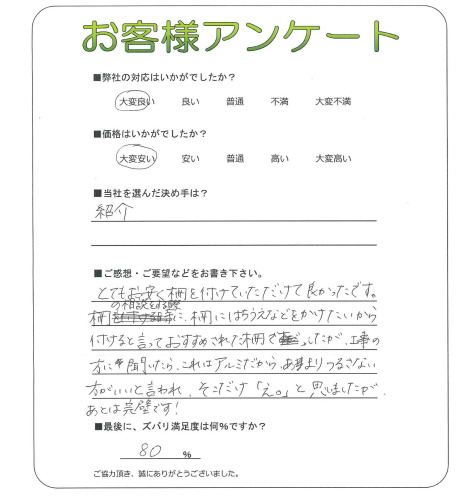 お客様アンケート
■弊社の対応はいかがでしたか？
大変良い 良い 普通 不満 大変不満
■価格はいかがでしたか？
大変安い 安い 普通 高い 大変高い
■当社を選んだ決め手は？
紹介
■ご感想・ご要望などをお書き下さい。
とてもお安く柵を付けていただけて良かったです。
の相談をする際
柵に、柵にはちうえなどをかけたいから
付けると言っておすすめされた柵でだったが、工事の
方に聞いたら、これはアルミだから、あまりつるさない
方がいいと言われ、そこだけ「え。」と思いましたが、
あとは完璧です！
■最後に、ズバリ満足度は何％ですか？
80 %
ご協力頂き、誠にありがとうございました。